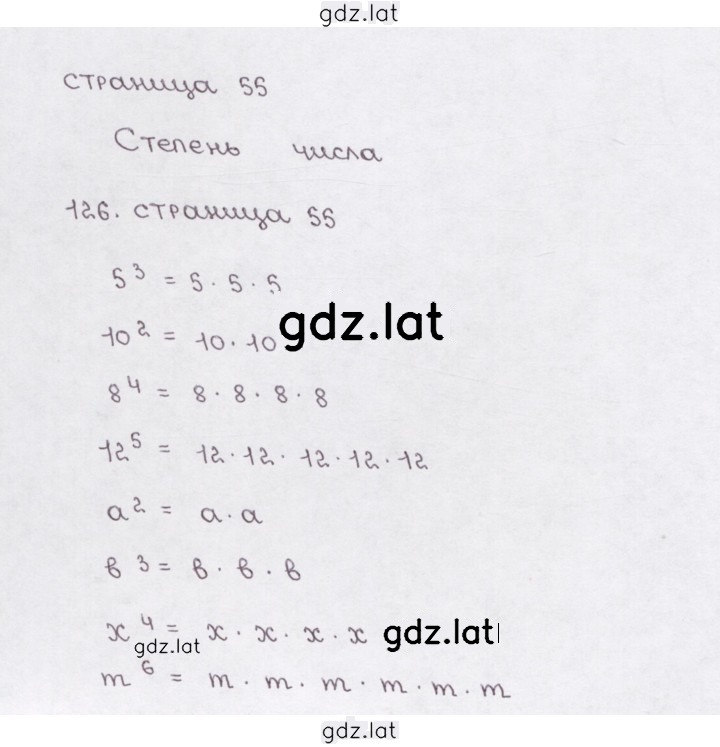 gdz.lat
страница 55
Степень числа
126. страница 55
5³ = 5 · 5 · 5
10² = 10 · 10 gdz.lat
8⁴ = 8 · 8 · 8 · 8
12⁵ = 12 · 12 · 12 · 12 · 12
a² = a · a
в³ = в · в · в
x⁴ = x · x · x · x gdz.lat
gdz.lat
m⁶ = m · m · m · m · m · m
gdz.lat